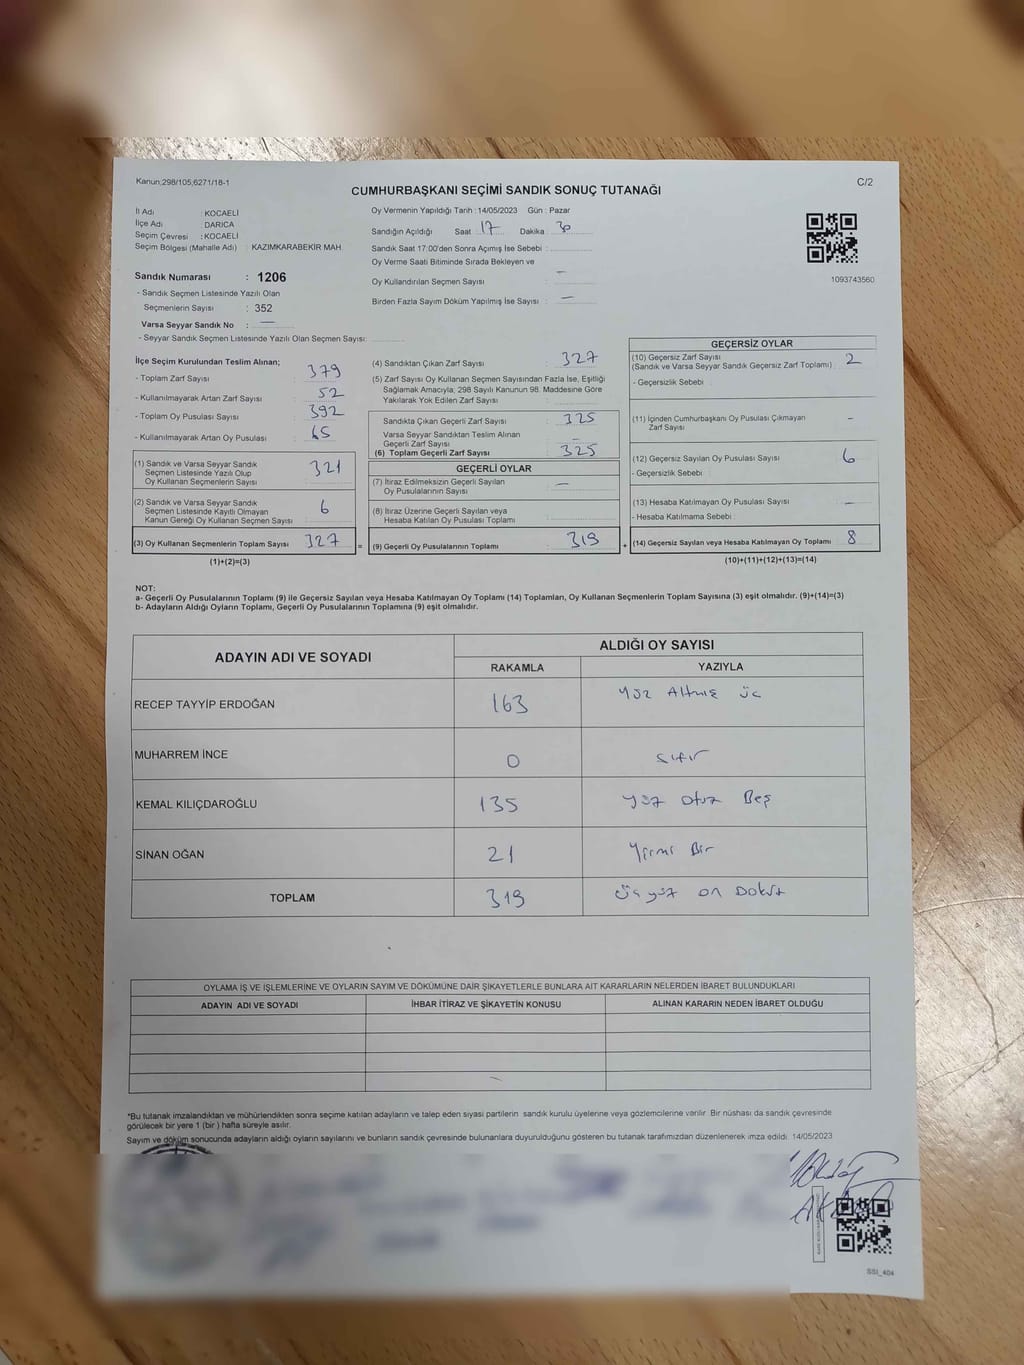 Kanun;298/105,6271/18-1
C/2
CUMHURBAŞKANI SEÇİMİ SANDIK SONUÇ TUTANAĞI
İl Adı : KOCAELİ
İlçe Adı : DARICA
Seçim Çevresi : KOCAELİ
Seçim Bölgesi (Mahalle Adı) : KAZIMKARABEKİR MAH.
Sandık Numarası : 1206
- Sandık Seçmen Listesinde Yazılı Olan
Seçmenlerin Sayısı : 352
Varsa Seyyar Sandık No : —
- Seyyar Sandık Seçmen Listesinde Yazılı Olan Seçmen Sayısı:
Oy Vermenin Yapıldığı Tarih : 14/05/2023 Gün : Pazar
Sandığın Açıldığı Saat : 17 Dakika : 30
Sandık Saat 17:00'den Sonra Açımış İse Sebebi :
Oy Verme Saati Bitiminde Sırada Bekleyen ve
Oy Kullandırılan Seçmen Sayısı : —
Birden Fazla Sayım Döküm Yapılmış İse Sayısı : —
1093743560
İlçe Seçim Kurulundan Teslim Alınan;
- Toplam Zarf Sayısı : 379
- Kullanılmayarak Artan Zarf Sayısı : 52
- Toplam Oy Pusulası Sayısı : 392
- Kullanılmayarak Artan Oy Pusulası : 65
(1) Sandık ve Varsa Seyyar Sandık
Seçmen Listesinde Yazılı Olup
Oy Kullanan Seçmenlerin Sayısı : 321
(2) Sandık ve Varsa Seyyar Sandık
Seçmen Listesinde Kayıtlı Olmayan
Kanun Gereği Oy Kullanan Seçmen Sayısı : 6
(3) Oy Kullanan Seçmenlerin Toplam Sayısı : 327 =
(1)+(2)=(3)
(4) Sandıktan Çıkan Zarf Sayısı : 327
(5) Zarf Sayısı Oy Kullanan Seçmen Sayısından Fazla İse, Eşitliği
Sağlamak Amacıyla; 298 Sayılı Kanunun 98. Maddesine Göre
Yakılarak Yok Edilen Zarf Sayısı :
Sandıkta Çıkan Geçerli Zarf Sayısı : 325
Varsa Seyyar Sandıktan Teslim Alınan
Geçerli Zarf Sayısı : —
(6) Toplam Geçerli Zarf Sayısı : 325
GEÇERLİ OYLAR
(7) İtiraz Edilmeksizin Geçerli Sayılan
Oy Pusulalarının Sayısı : —
(8) İtiraz Üzerine Geçerli Sayılan veya
Hesaba Katılan Oy Pusulası Toplamı :
(9) Geçerli Oy Pusulalarının Toplamı : 319 +
GEÇERSİZ OYLAR
(10) Geçersiz Zarf Sayısı
(Sandık ve Varsa Seyyar Sandık Geçersiz Zarf Toplamı) : 2
- Geçersizlik Sebebi :
(11) İçinden Cumhurbaşkanı Oy Pusulası Çıkmayan
Zarf Sayısı : —
(12) Geçersiz Sayılan Oy Pusulası Sayısı : 6
- Geçersizlik Sebebi :
(13) Hesaba Katılmayan Oy Pusulası Sayısı : —
- Hesaba Katılmama Sebebi :
(14) Geçersiz Sayılan veya Hesaba Katılmayan Oy Toplamı : 8
(10)+(11)+(12)+(13)=(14)
NOT:
a- Geçerli Oy Pusulalarının Toplamı (9) ile Geçersiz Sayılan veya Hesaba Katılmayan Oy Toplamı (14) Toplamları, Oy Kullanan Seçmenlerin Toplam Sayısına (3) eşit olmalıdır. (9)+(14)=(3)
b- Adayların Aldığı Oyların Toplamı, Geçerli Oy Pusulalarının Toplamına (9) eşit olmalıdır.
ADAYIN ADI VE SOYADI ALDIĞI OY SAYISI
RAKAMLA YAZIYLA
RECEP TAYYİP ERDOĞAN 163 Yüz Altmış üç
MUHARREM İNCE 0 sıfır
KEMAL KILIÇDAROĞLU 135 yüz otuz Beş
SİNAN OĞAN 21 Yirmi Bir
TOPLAM 319 Üçyüz on Dokuz
OYLAMA İŞ VE İŞLEMLERİNE VE OYLARIN SAYIM VE DÖKÜMÜNE DAİR ŞİKAYETLERLE BUNLARA AİT KARARLARIN NELERDEN İBARET BULUNDUKLARI
ADAYIN ADI VE SOYADI İHBAR İTİRAZ VE ŞİKAYETİN KONUSU ALINAN KARARIN NEDEN İBARET OLDUĞU
*Bu tutanak imzalandıktan ve mühürlendikten sonra seçime katılan adayların ve talep eden siyasi partilerin sandık kurulu üyelerine veya gözlemcilerine verilir. Bir nüshası da sandık çevresinde
görülecek bir yere 1 (bir ) hafta süreyle asılır.
Sayım ve döküm sonucunda adayların aldığı oyların sayılarını ve bunların sandık çevresinde bulunanlara duyurulduğunu gösteren bu tutanak tarafımızdan düzenlenerek imza edildi. 14/05/2023
SSI_404